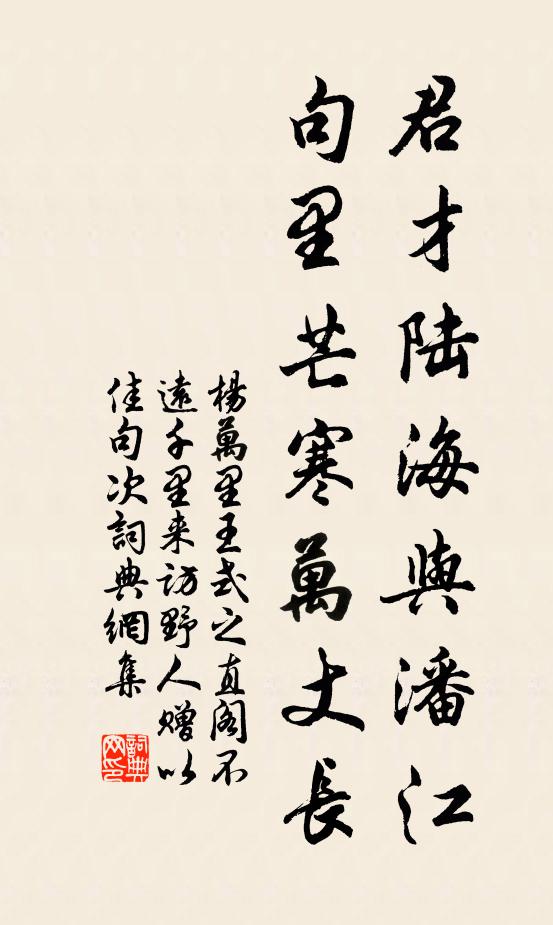 君才陆海與潘江
句里芒寒萬丈長
楊萬里王式之直阁不
遠千里来访野人赠以
佳句次詞典網集
詞典網印